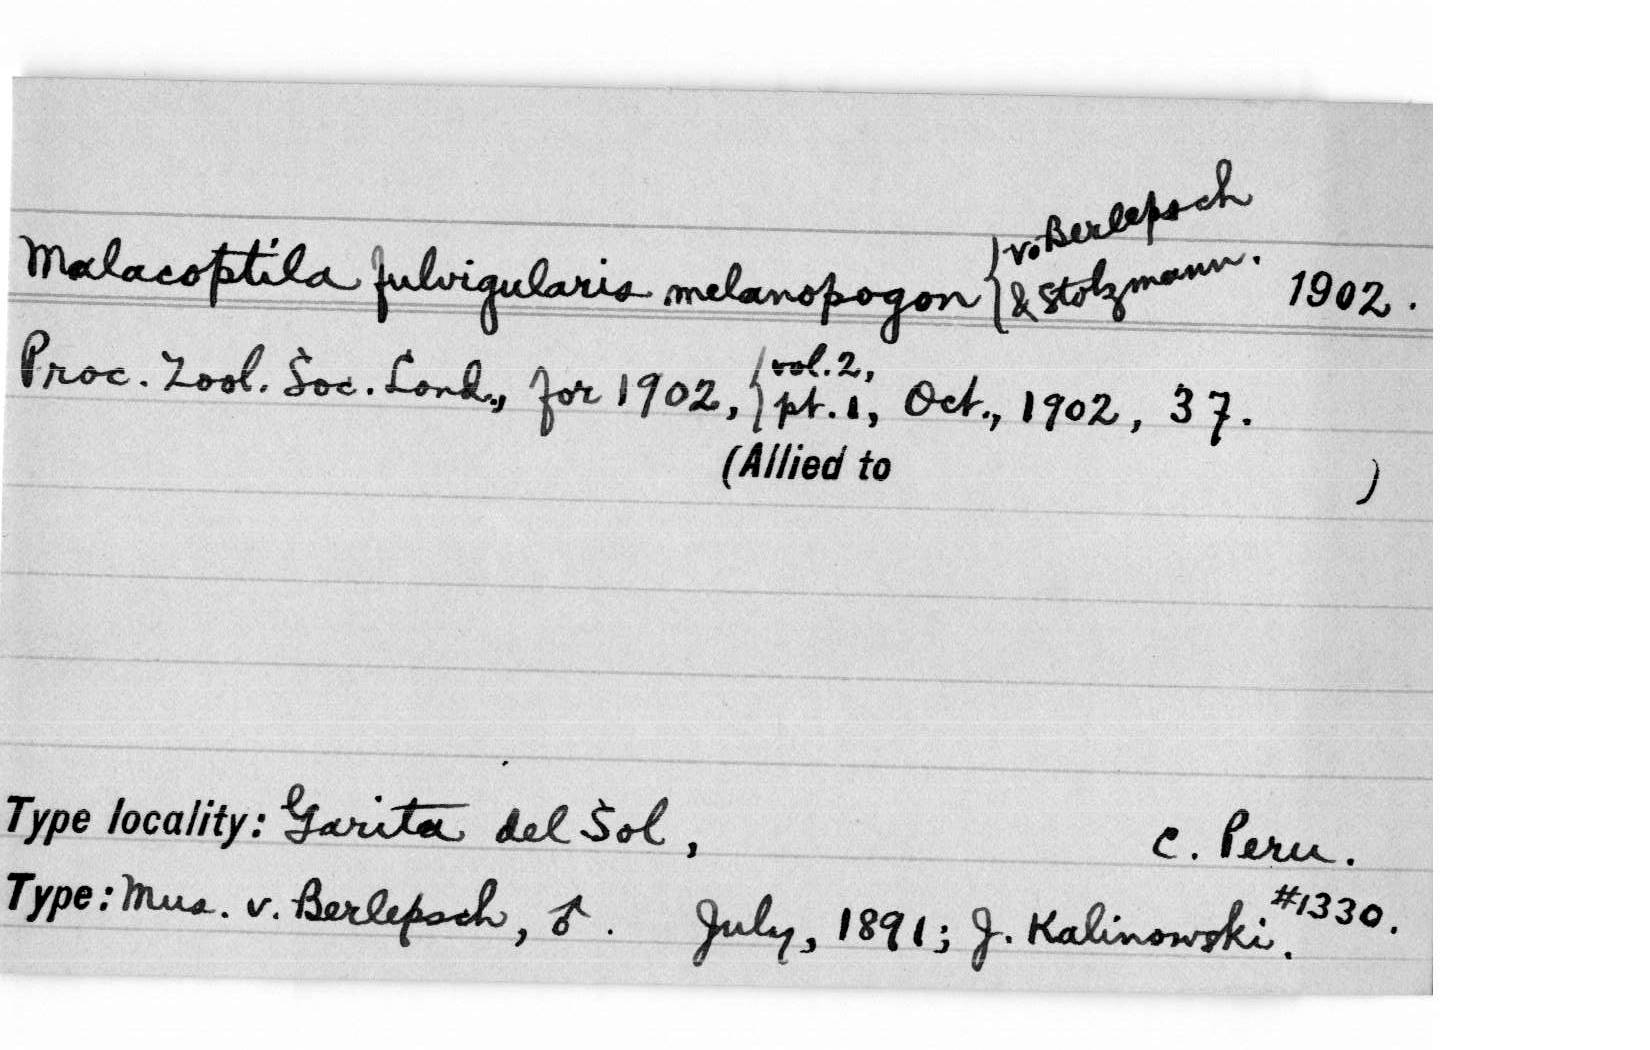 Malacoptila fulvigularis melanopogon { v. Berlepsch & Stolzmann. 1902.
Proc. Zool. Soc. Lond., for 1902, { vol. 2, pt. 1, Oct., 1902, 37.
(Allied to )
Type locality: Garita del Sol, C. Peru.
Type: Mus. v. Berlepsch, ♂. July, 1891; J. Kalinowski. #1330.